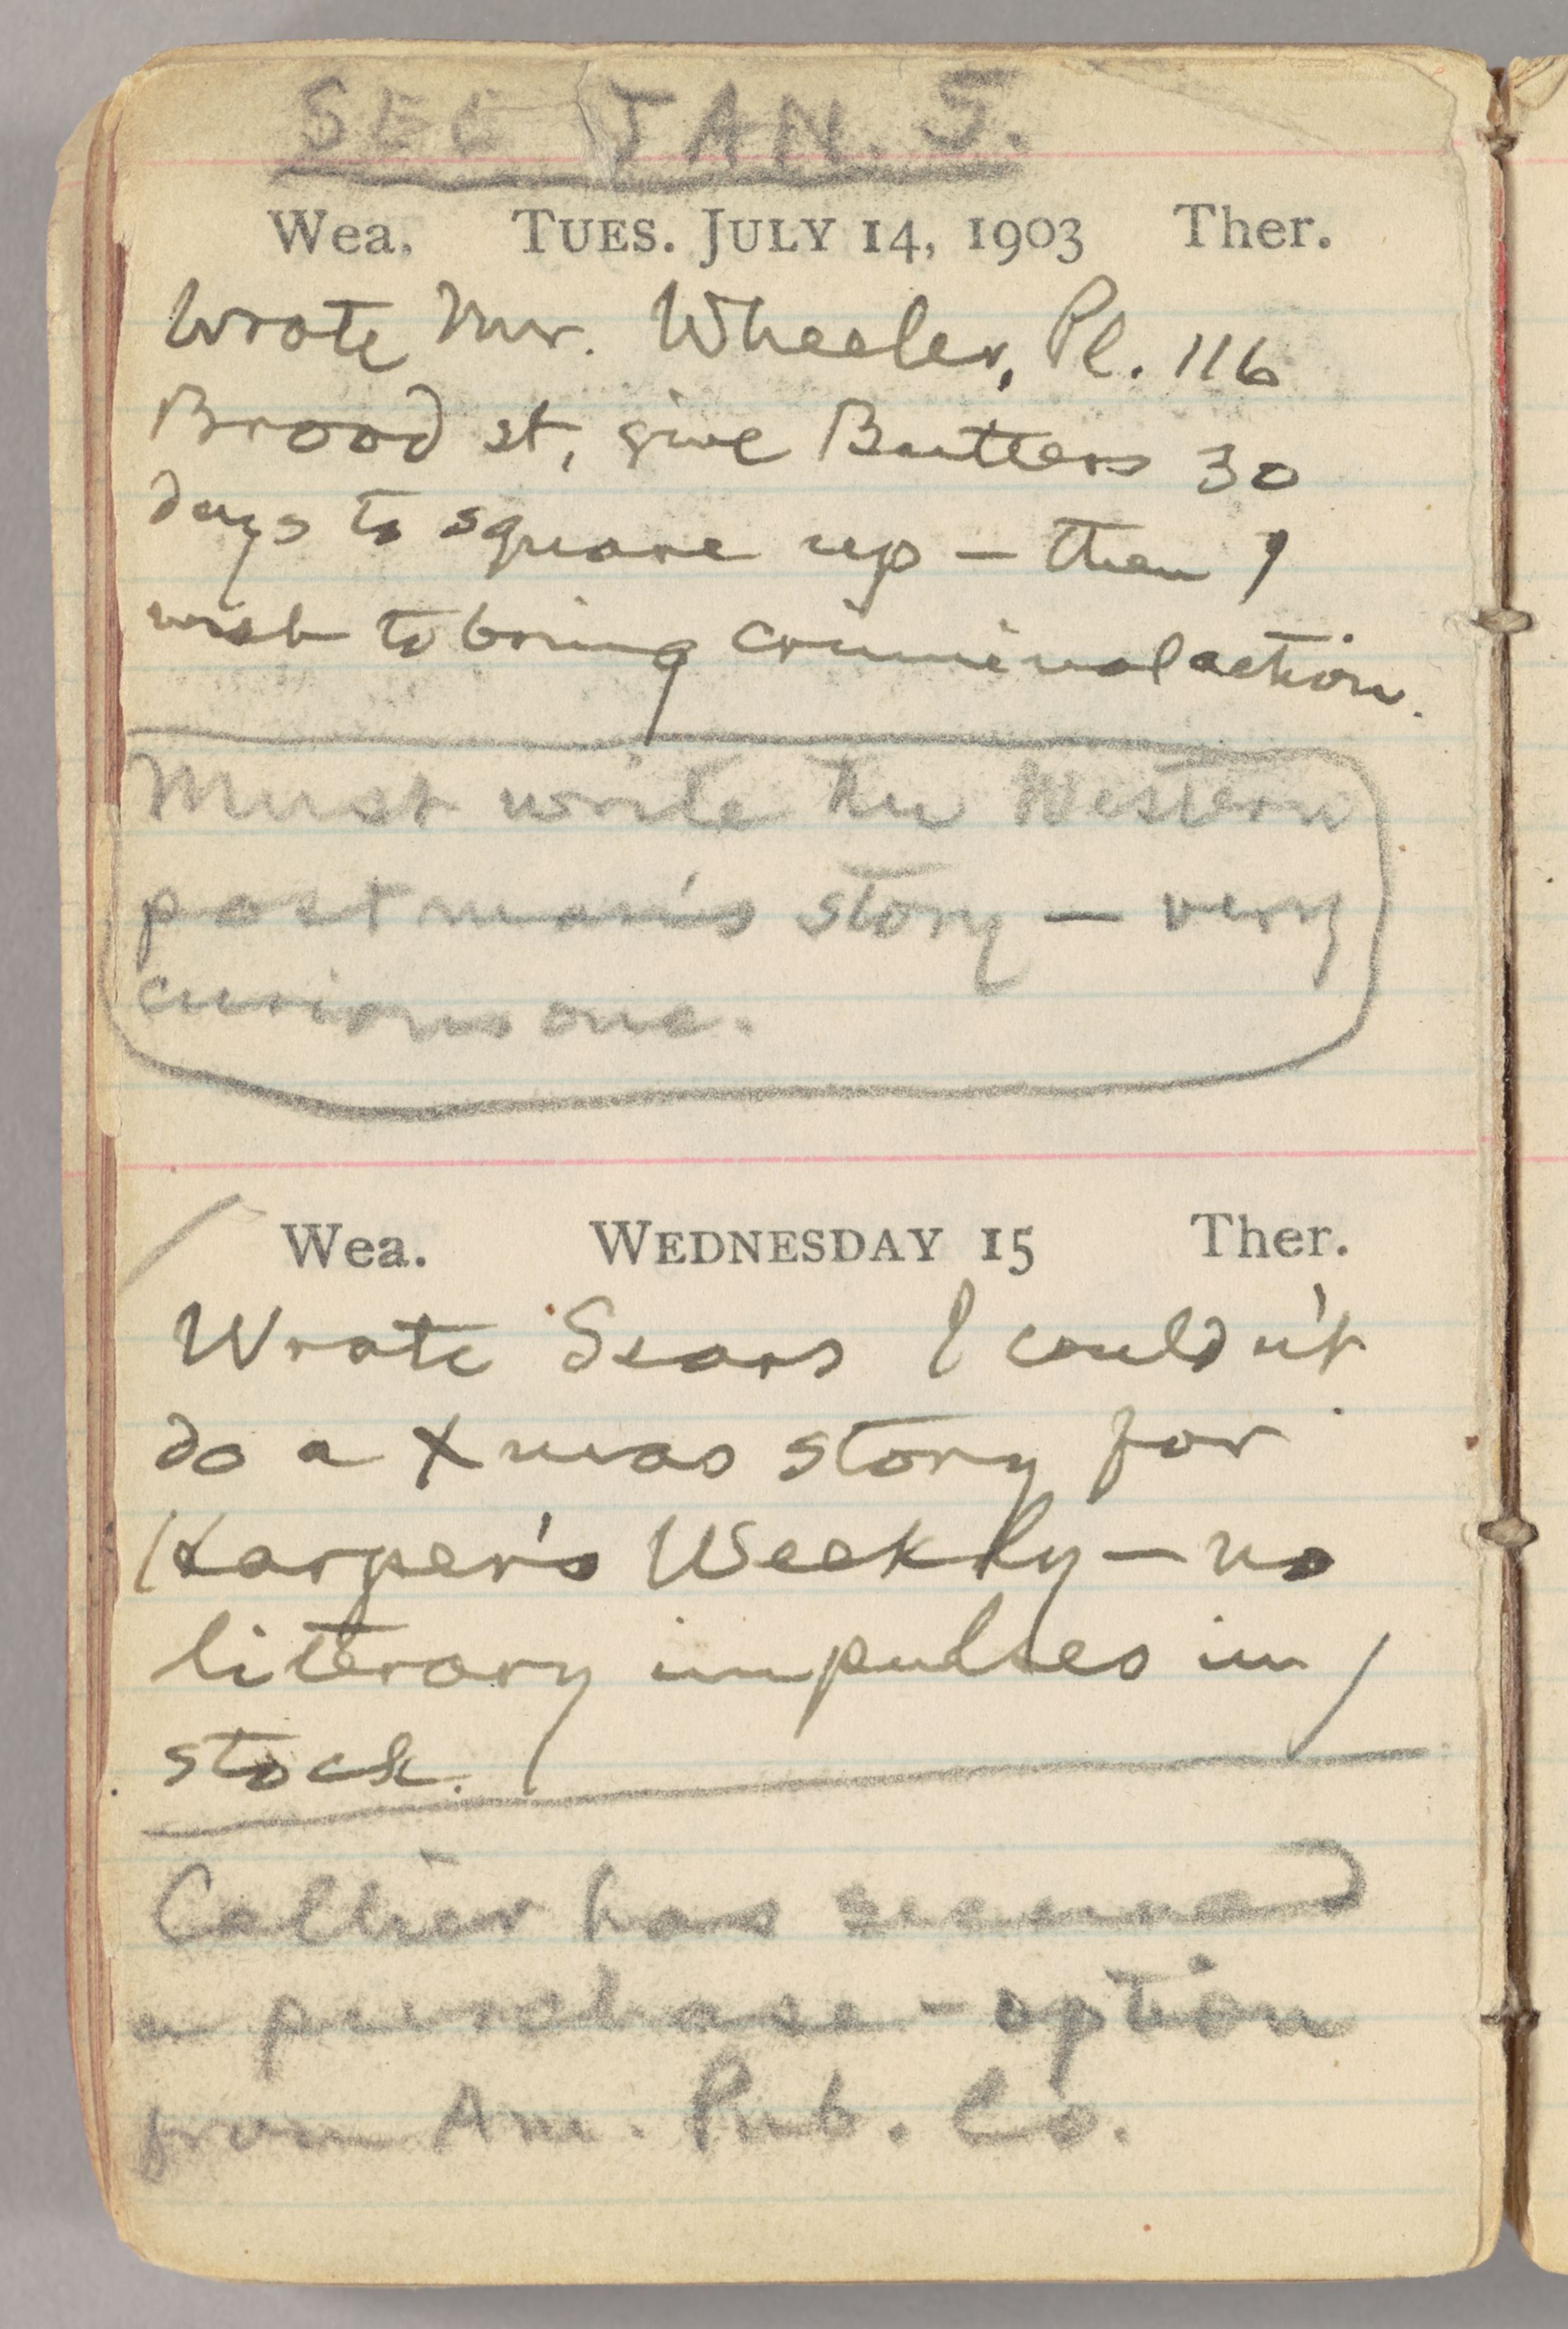 SEE JAN. 5.
Wea. TUES. JULY 14, 1903 Ther.
Wrote Mr. Wheeler, Pl. 116
Broad st, give Butters 30
days to square up — then I
wish to bring criminal action.
Must write the Western
postman's story — very
curious one.
Wea. WEDNESDAY 15 Ther.
Wrote Sears I couldn't
do a Xmas story for
Harper's Weekly — no
literary impulses in
stock.
Collier has secured
a purchase-option
from Am. Pub. Co.